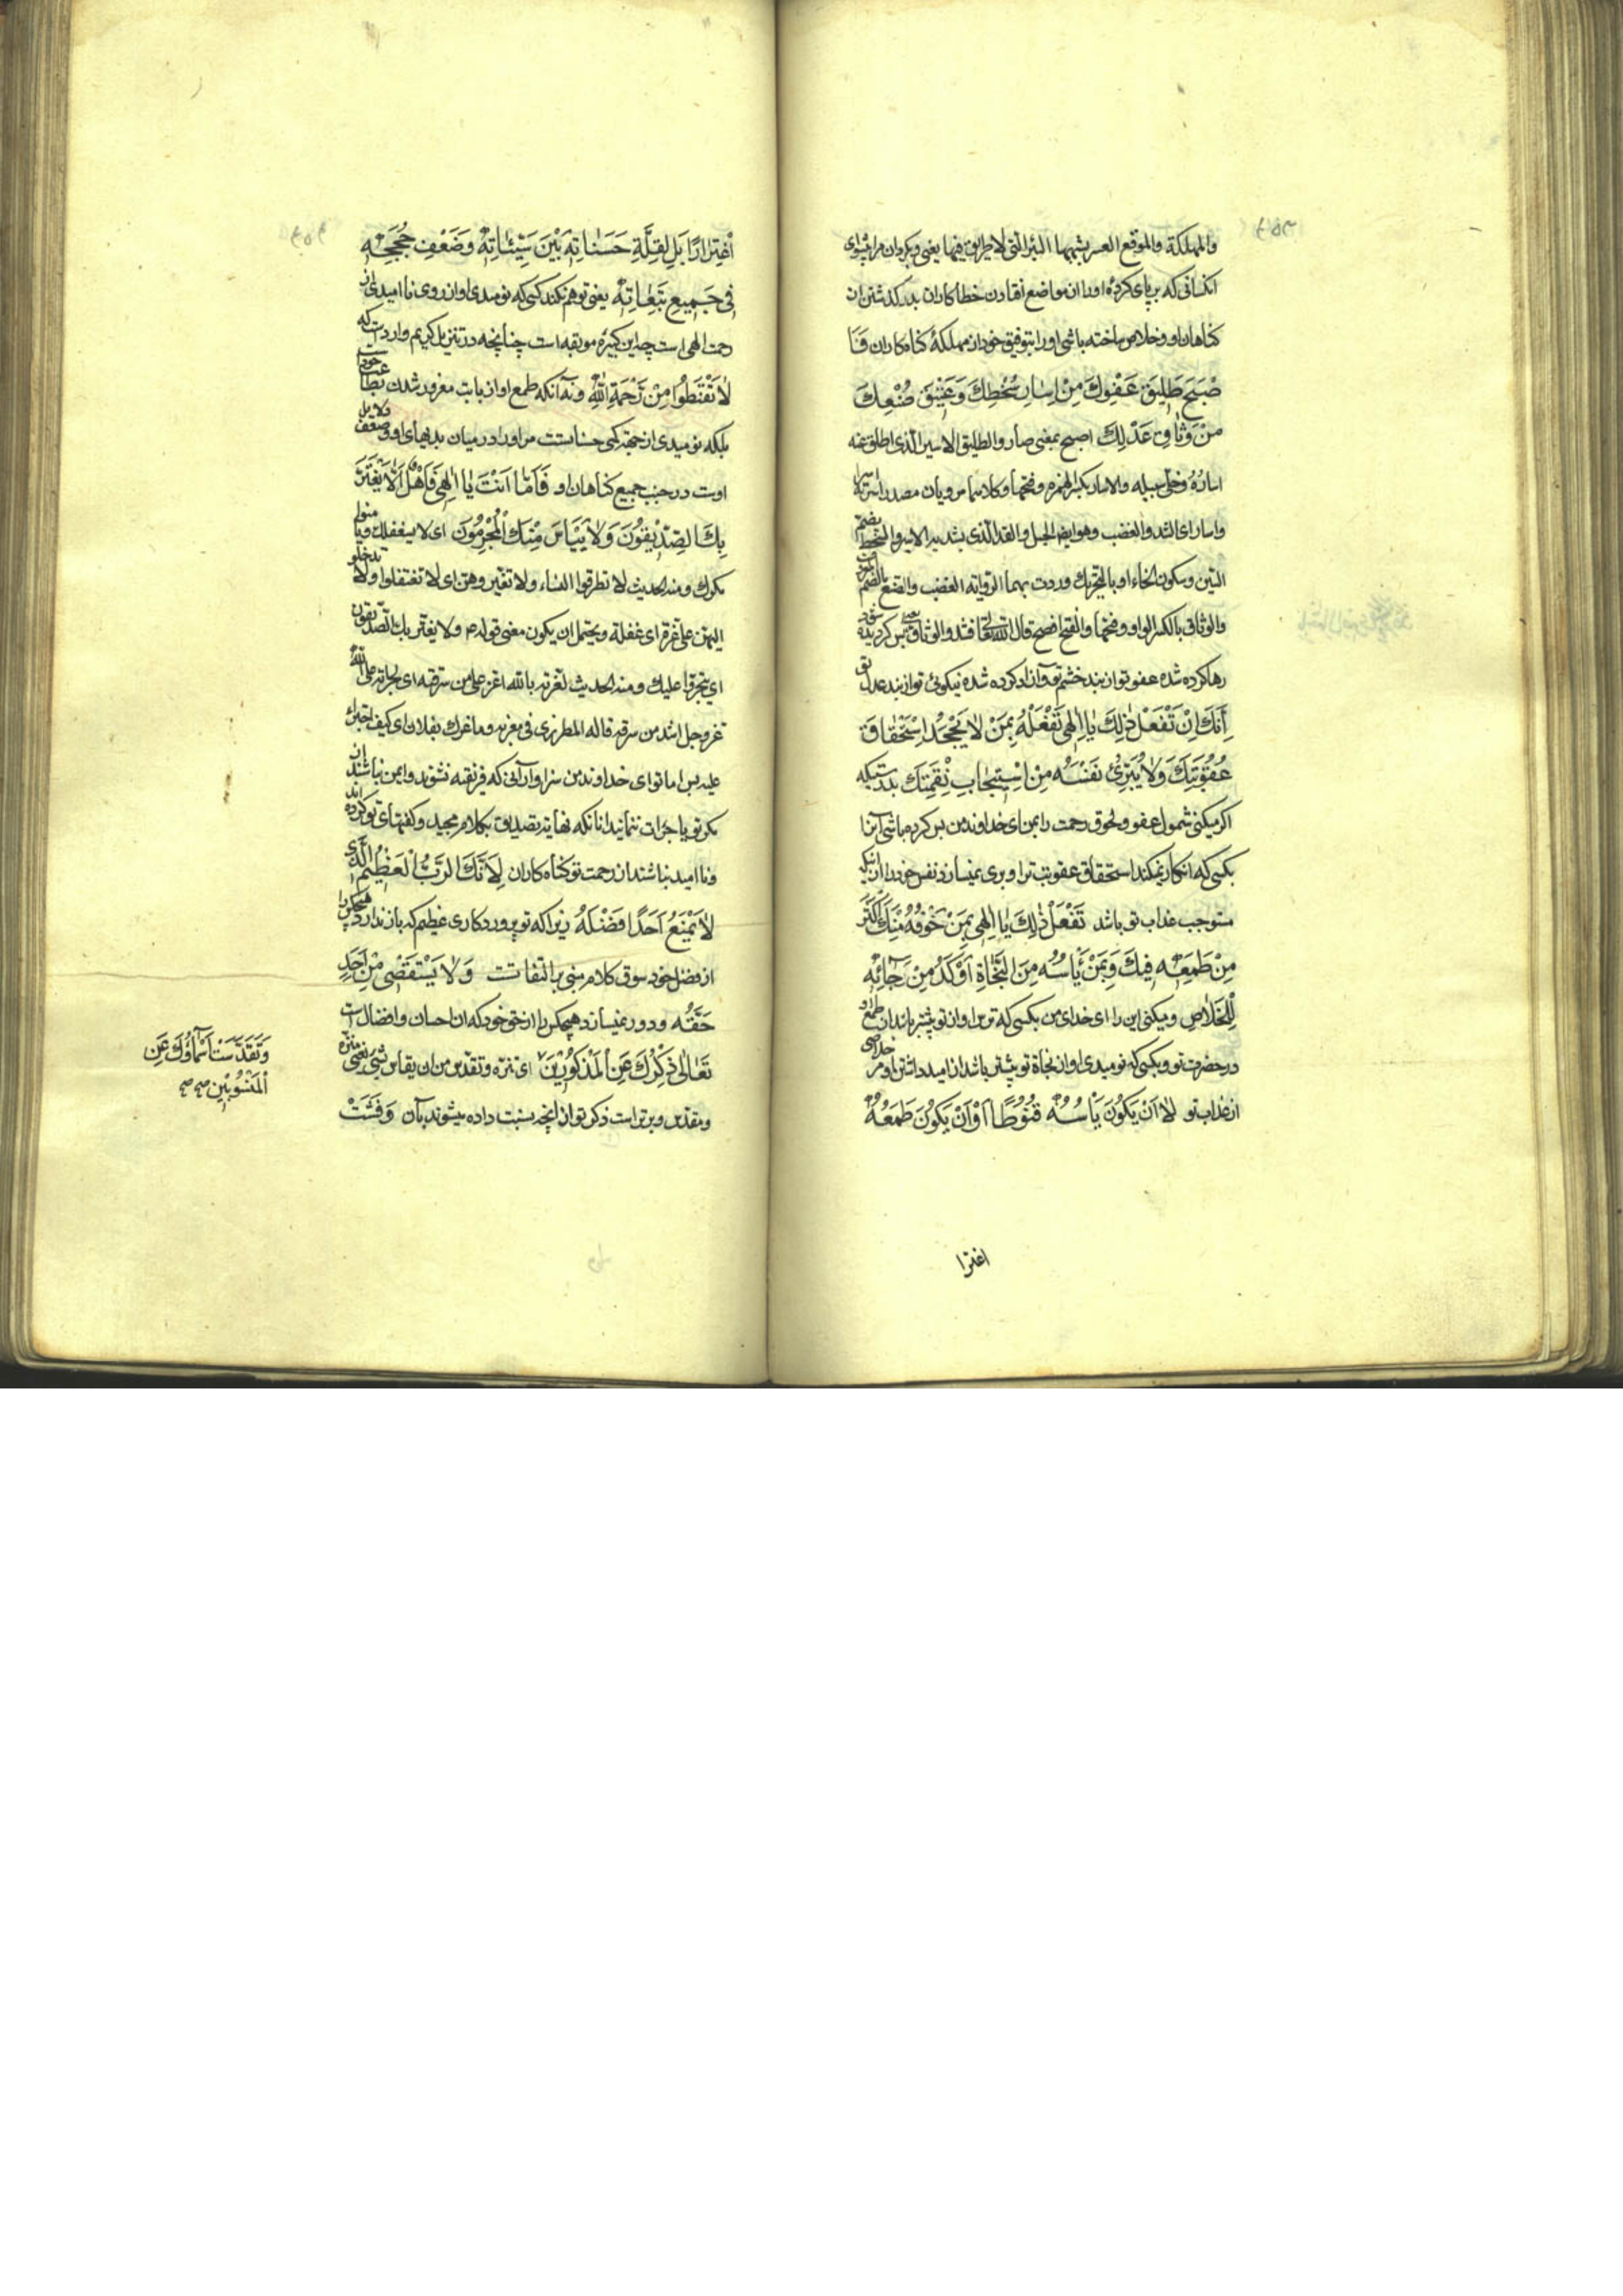 والمهلكة والموقع العسر يشبهها البئر التى لا طريق فيها يعنى و بكردان مرا پيشواى
انكسانى كه بر پاى كردهٔ اورا از مواضع افتادن خطاكاران بدر كذشتن از
كناهان او و خلاص ساخته باشى اورا بتوفيق خود از مهلكهٔ كناه كاران فَأَ
صْبَحَ طَلِيقَ عَفْوِكَ مِنْ اِسَارِ سُخْطِكَ وَعَتِيقَ صُنْعِكَ
مِنْ وَثَاقِ عَدْلِكَ اصبح بمعنى صار والطليق الاسير الذى اطلق عنه
اساره وخلى سبيله والاسار بكسر الهمزه وفتحها وكلاهما مرويان مصدر اسرته اسرا
واسارا اى الشد والغضب وهو ايضا الحبل والقد الذى يشد به الاسير والسخط بضم
السين وسكون الخاء او بالتحريك وردت بهما الرواية الغضب والصنع بالضم
والوثاق بالكسر الواو وفتحها والفتح افصح قال الله تعالى فشدوا الوثاق يعنى پس كرديده شود
رها كرده شده عفو تو از بند خشم تو و ازاد كرده شده نيكوئى تو از بند عدل تو
أَنَّكَ اِنْ تَفْعَلْ ذٰلِكَ يٰا اِلٰهِى تَفْعَلْهُ بِمَنْ لاٰ يَجْحَدُ اِسْتِحْقٰاقَ
عُقُوبَتِكَ وَلاٰ يُبَرِّئُ نَفْسَهُ مِنْ اِسْتِيجٰابِ نَقِمَتِكَ بدرستيكه
اكر ميكنى شمول عفو ولحوق رحمت را بمن اى خداوند من پس كرده باشى آنرا
بكسى كه انكار نميكند استحقاق عقوبت ترا و برى نميسازد نفس خود را از انكه
مستوجب عذاب تو باشد تَفْعَلْ ذٰلِكَ يٰا اِلٰهِى بِمَنْ خَوْفُهُ مِنْكَ اَكْثَرُ
مِنْ طَمَعِهِ فِيكَ وَبِمَنْ يَأْسُهُ مِنَ النَّجٰاةِ اَوْكَدُ مِنْ رَجٰائِهِ
لِلْخَلاٰصِ و ميكنى اين را اى خداى من بكسى كه ترس او از تو پيشتر باشد از طمع او
در حضرت تو و بكسى كه نوميدى او از نجاة تو پيشتر باشد از اميد داشتن او مر خلاصى
از عذاب تو لاٰ اَنْ يَكُونَ يَأْسُهُ قُنُوطًا اَوْ اَنْ يَكُونَ طَمَعُهُ
اغترا
اغْتِرٰارًا بَلْ لِقِلَّةِ حَسَنٰاتِهِ بَيْنَ سَيِّئٰاتِهِ وَضَعْفِ حُجَجِهِ
فِى جَمِيعِ تَبِعٰاتِهِ يعنى توهم نكند كسى كه نوميدى او از روى نااميدى از
رحمت الهى است چه اين كبيره موبقه است چنانچه در تنزيل كريم وارد است كه
لاٰ تَقْنَطُوا مِنْ رَحْمَةِ اللهِ و نه آنكه طمع او از بابت مغرور شدن بطاعت خود است
بلكه نوميدى از جهة كمى حسناتست مر او را در ميان بديهاى او و ضعف دلايل
اوست در جنب جميع كناهان او فَاَمّٰا اَنْتَ يٰا اِلٰهِى فَاَهْلٌ اَلاّٰ يَغْتَرَّ
بِكَ الصِّدِّيقُونَ وَلاٰ يَيْأَسَ مِنْكَ الْمُجْرِمُونَ اى لا يتغفلك ويامنوا
مكرك ومنه الحديث لا تطرقوا النساء ولا تغتروهن اى لا تغتفلوا ولا تدخلوا
اليهن على غرة اى غفلة ويحتمل ان يكون معنى قوله ع ولا يغتر بك الصديقون
اى يتجرؤا عليك ومنه الحديث لغرته بالله اعز على من سرقته اى لجراته على الله
عز وجل اشد من سرقته قاله المطرزى فى مغربه وما غرك بفلان اى كيف اجترات
عليه پس اما تو اى خداوند من سزاوار آنى كه فريفته نشوند و ايمن نباشند از
مكر تو يا جرات ننمايند انانكه نهايت تصديق بكلام مجيد و كفتهاى تو كرده اند
و نااميد نباشند از رحمت تو كناه كاران لِاَنَّكَ الرَّبُّ الْعَظِيمُ الَّذِى
لاٰ يَمْنَعُ اَحَدًا فَضْلَهُ زيرا كه تو پروردكارى عظيم كه باز ندارد هيچكس را
از فضل خود سوق كلام مبنى بر التفاتست وَلاٰ يَسْتَقْصِى مِنْ اَحَدٍ
حَقَّهُ و دور نميسازد هيچكس را از حق خود كه ان احسان و افضال است
تَعٰالٰى ذِكْرُكَ عَنِ الْمَذْكُورِينَ اى تنزه وتقدس من ان يقاس بشئ يعنى منزه
و مقدس و برتر است ذكر تو از انچه نسبت داده ميشوند بآن وَفَشَتْ
وَتَقَدَّسَتْ اَسْمٰاؤُكَ عَنِ
الْمَنْسُوبِينَ صح صح